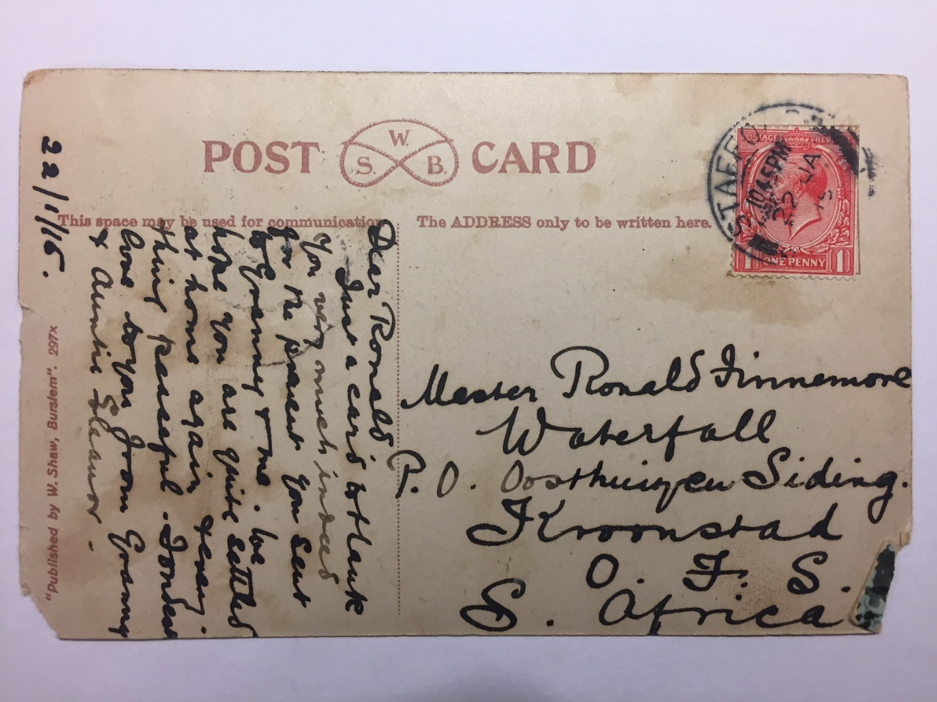 POST CARD
S. W. B.
This space may be used for communication
The ADDRESS only to be written here.
STAFFORD
10 45 PM
22 JA
15
POSTAGE REVENUE
1 ONE PENNY 1
22/1/15.
Dear Ronald
Just a card to thank
you very much indeed
for the parcel you sent
to Granny & me. We
hope you are quite settled
at home again & every
thing peaceful. Fondest
love to you from Granny
& Auntie Eleanor.
Master Ronald Finnemore
Waterfall
P. O. Oosthuizen Siding.
Kroonstad
O. F. S.
S. Africa
"Published by W. Shaw, Burslem". 297x